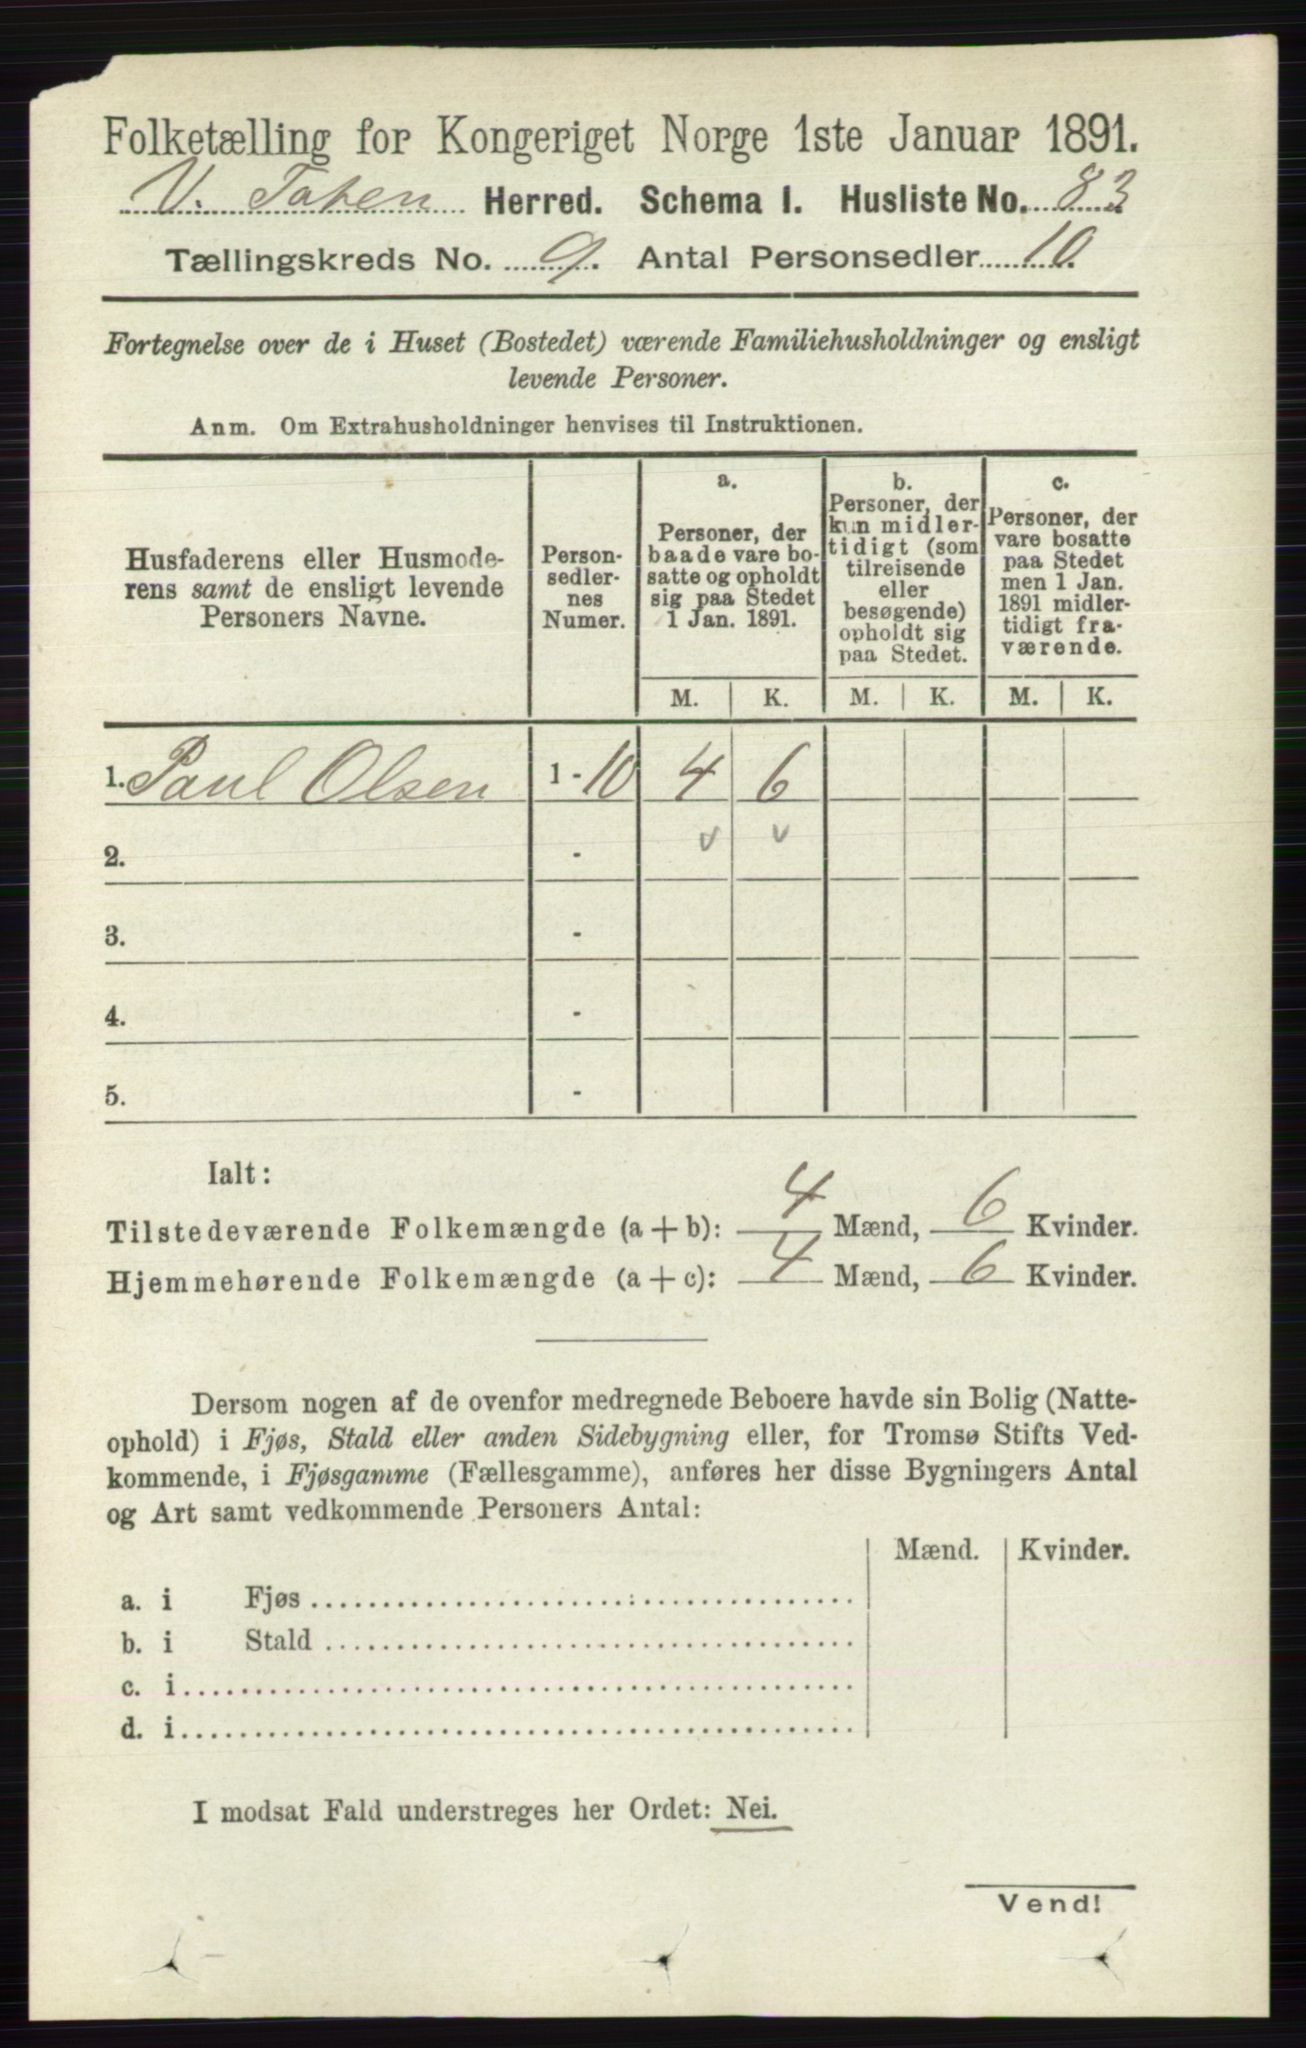 Folketælling for Kongeriget Norge 1ste Januar 1891.
V. Toten Herred. Schema I. Husliste No. 83
Tællingskreds No. 9. Antal Personsedler 10.
Fortegnelse over de i Huset (Bostedet) værende Familiehusholdninger og ensligt
levende Personer.
Anm. Om Extrahusholdninger henvises til Instruktionen.
Husfaderens eller Husmode-
rens samt de ensligt levende
Personers Navne.
Person-
sedler-
nes
Numer.
a.
Personer, der
baade vare bo-
satte og opholdt
sig paa Stedet
1 Jan. 1891.
b.
Personer, der
kun midler-
tidigt (som
tilreisende
eller
besøgende)
opholdt sig
paa Stedet.
c.
Personer, der
vare bosatte
paa Stedet
men 1 Jan.
1891 midler-
tidigt fra-
værende.
M. K. M. K. M. K.
1. Paul Olsen 1 - 10 4 6
2. - v v
3. -
4. -
5. -
Ialt:
Tilstedeværende Folkemængde (a + b): 4 Mænd, 6 Kvinder.
Hjemmehørende Folkemængde (a + c): 4 Mænd, 6 Kvinder.
Dersom nogen af de ovenfor medregnede Beboere havde sin Bolig (Natte-
ophold) i Fjøs, Stald eller anden Sidebygning eller, for Tromsø Stifts Ved-
kommende, i Fjøsgamme (Fællesgamme), anføres her disse Bygningers Antal
og Art samt vedkommende Personers Antal:
Mænd. Kvinder.
a. i Fjøs
b. i Stald
c. i
d. i
I modsat Fald understreges her Ordet: Nei.
Vend!